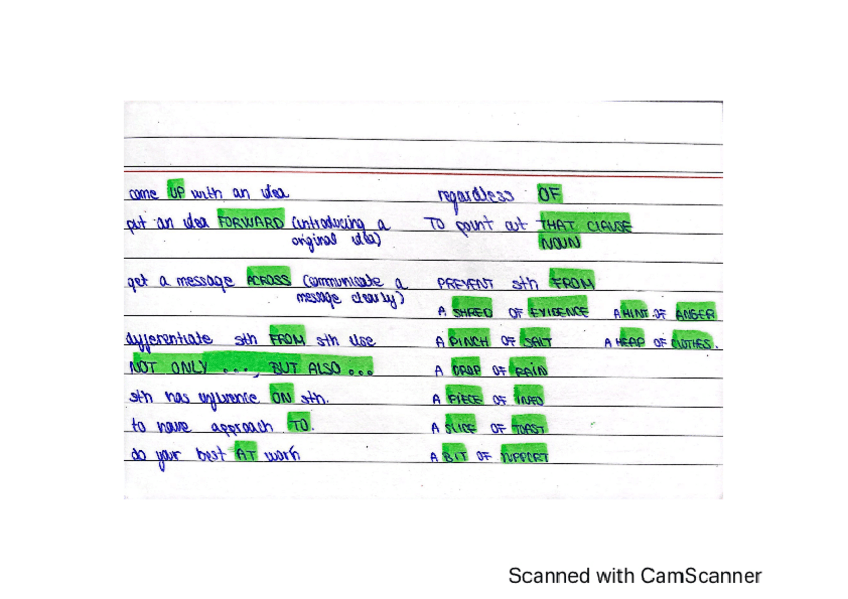 come UP with an idea
put an idea FORWARD (introducing a
original idea)
get a message ACROSS (communicate a
message clearly)
differentiate sth FROM sth else
NOT ONLY ..., BUT ALSO ...
sth has influence ON sth.
to have approach TO.
do your best AT work
regardless OF
TO point out THAT CLAUSE
NOUN
PREVENT sth FROM
A SHRED OF EVIDENCE A HINT OF ANGER
A PINCH OF SALT A HEAP OF CLOTHES.
A DROP OF RAIN
A PIECE OF INFO
A SLICE OF TOAST
A BIT OF SUPPORT
Scanned with CamScanner